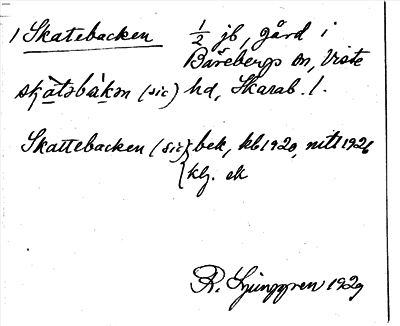 1 Skatebacken 1/2 jb, gård i
Barebergs sn, Viste
skàtəbàkən (sic) hd, Skarab. l.
Skattebacken (sic) bek, kb 1920, mtl 1926
klg. ek
R. Ljunggren 1929